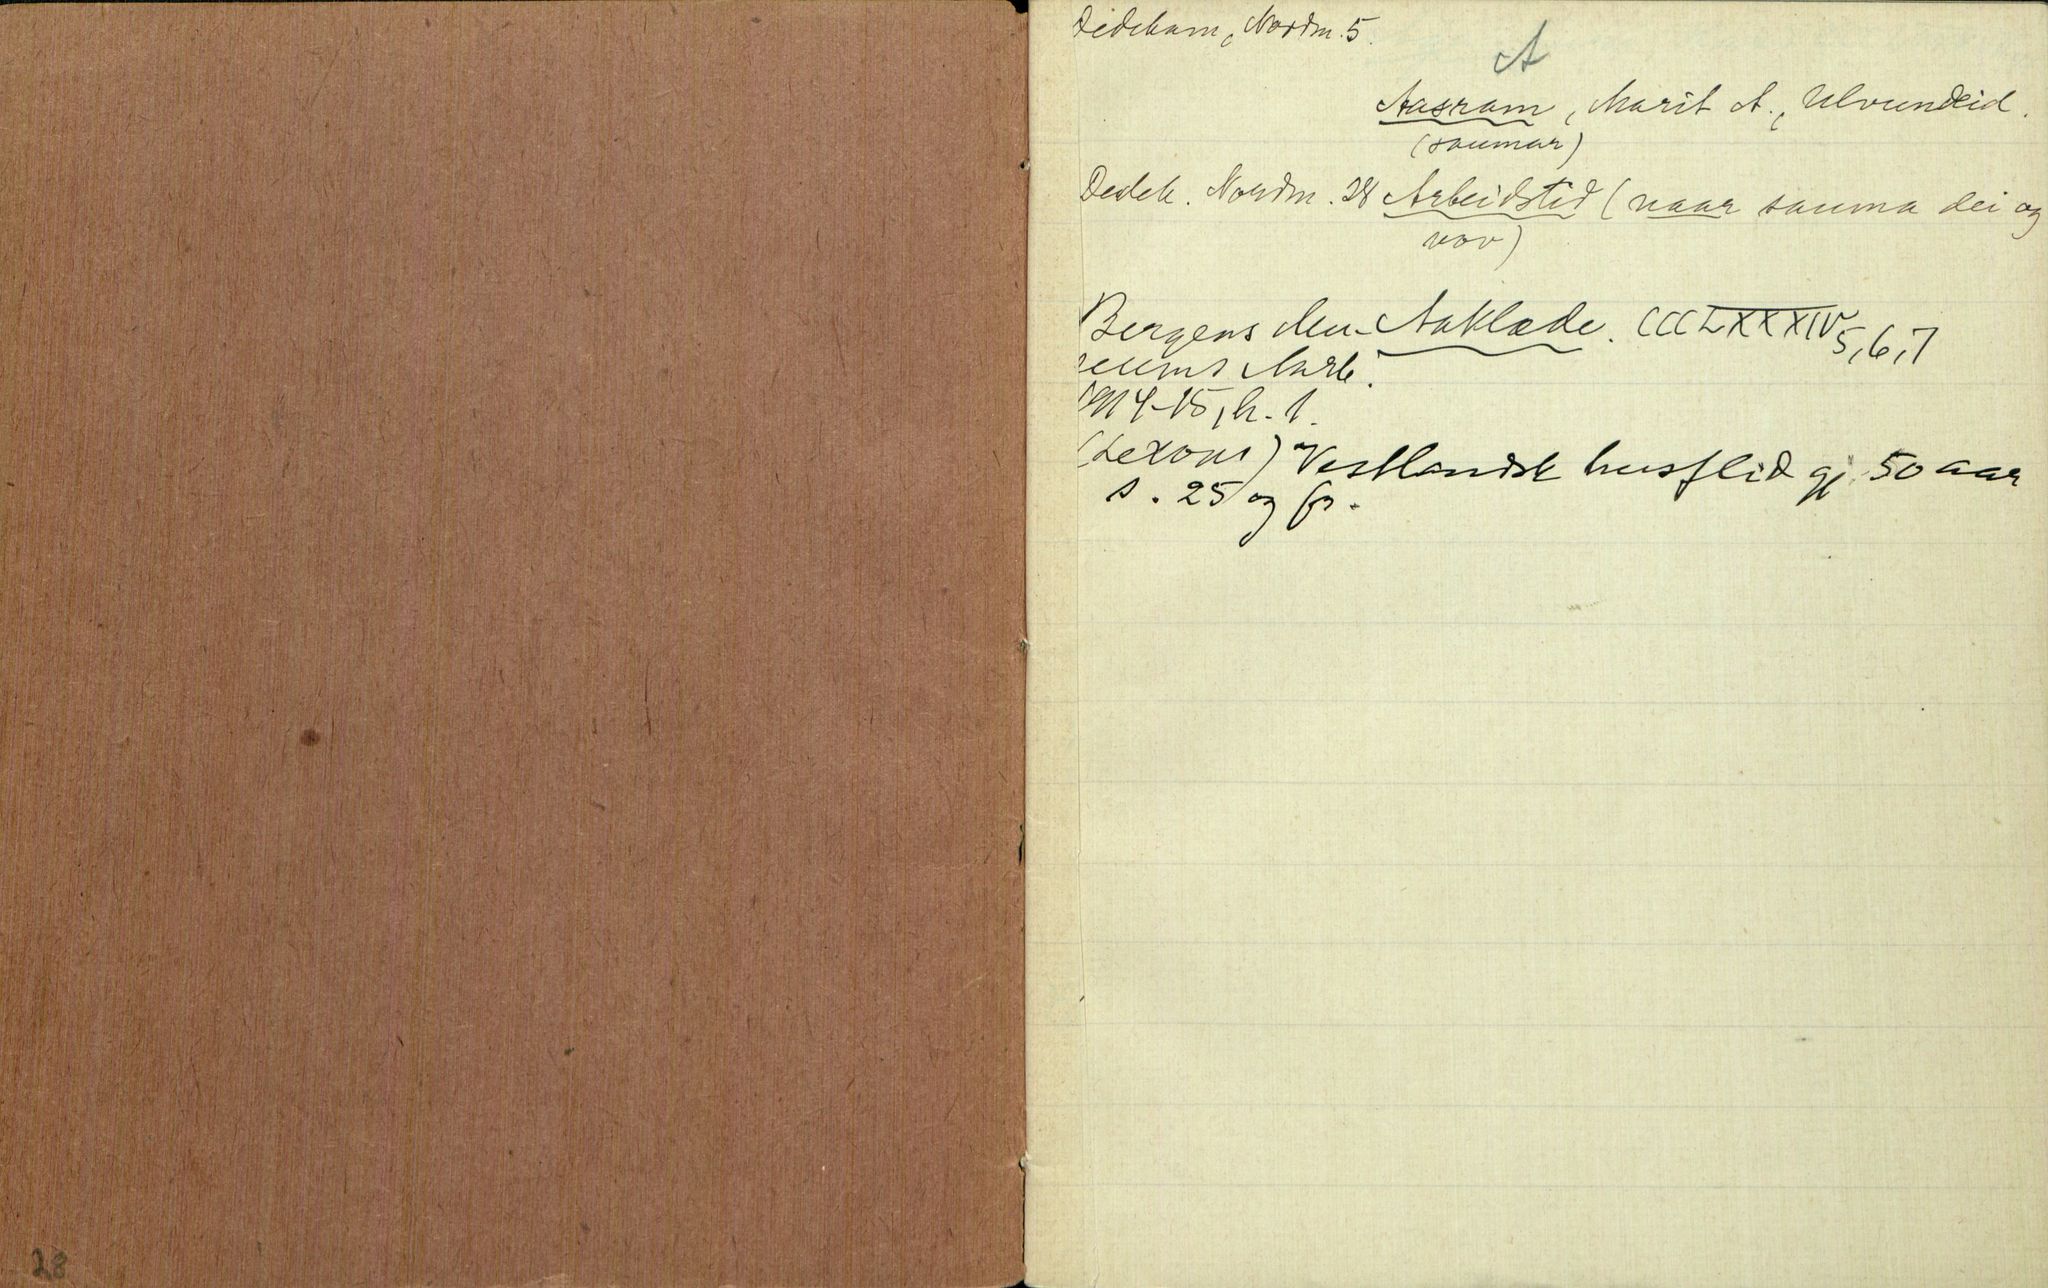 Dedekam, Nordm. 5.
A
Aasram, Marit A., Ulvundeid.
(saumar)
Dedek. Nordm. 28 Arbeidstid (naar sauma dei og
vov)
Bergens Mu- Aaklæde. CCCLXXXIV 5, 6, 7
seums Aarb.
1914-15, h. 1.
(Lexow) Vestlandsk husflid gj. 50 aar
s. 25 og fr.
28